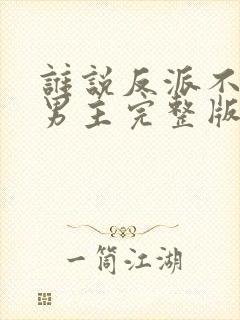 誰說反派不
男主完整版
一筒江湖